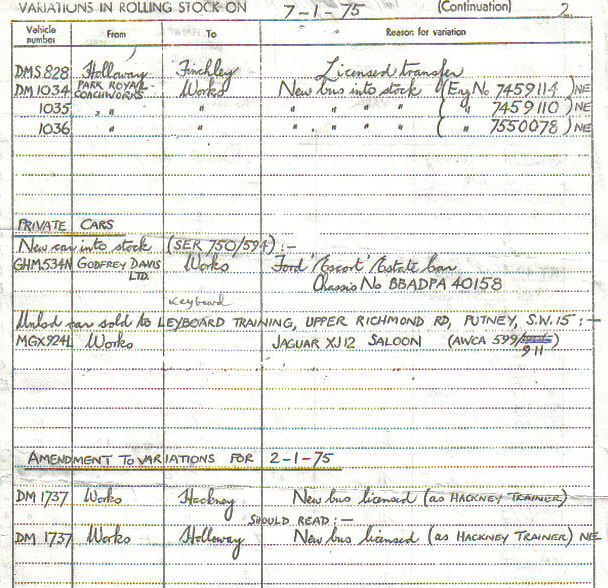 VARIATIONS IN ROLLING STOCK ON 7-1-75 (Continuation) 2
Vehicle number From To Reason for variation
DMS 828 Holloway Finchley Licensed transfer
DM 1034 PARK ROYAL COACHWORKS Works New bus into stock (Eng No 7459114) NE
1035 " " " " " " " ( " 7459110) NE
1036 " " " " " " ( " 7550078) NE
PRIVATE CARS
New car into stock (SER 750/594) :-
GHM534N GODFREY DAVIS LTD. Works Ford 'Escort' Estate Car
Chassis No BBADPA 40158
Keyboard
Unlsd car sold to LEYBOARD TRAINING, UPPER RICHMOND RD, PUTNEY, S.W.15 :-
MGX924L Works JAGUAR XJ12 SALOON (AWCA 599/
911
)
AMENDMENT TO VARIATIONS FOR 2-1-75
DM 1737 Works Hackney New bus licensed (as HACKNEY TRAINER)
SHOULD READ :-
DM 1737 Works Holloway New bus licensed (as HACKNEY TRAINER) NE